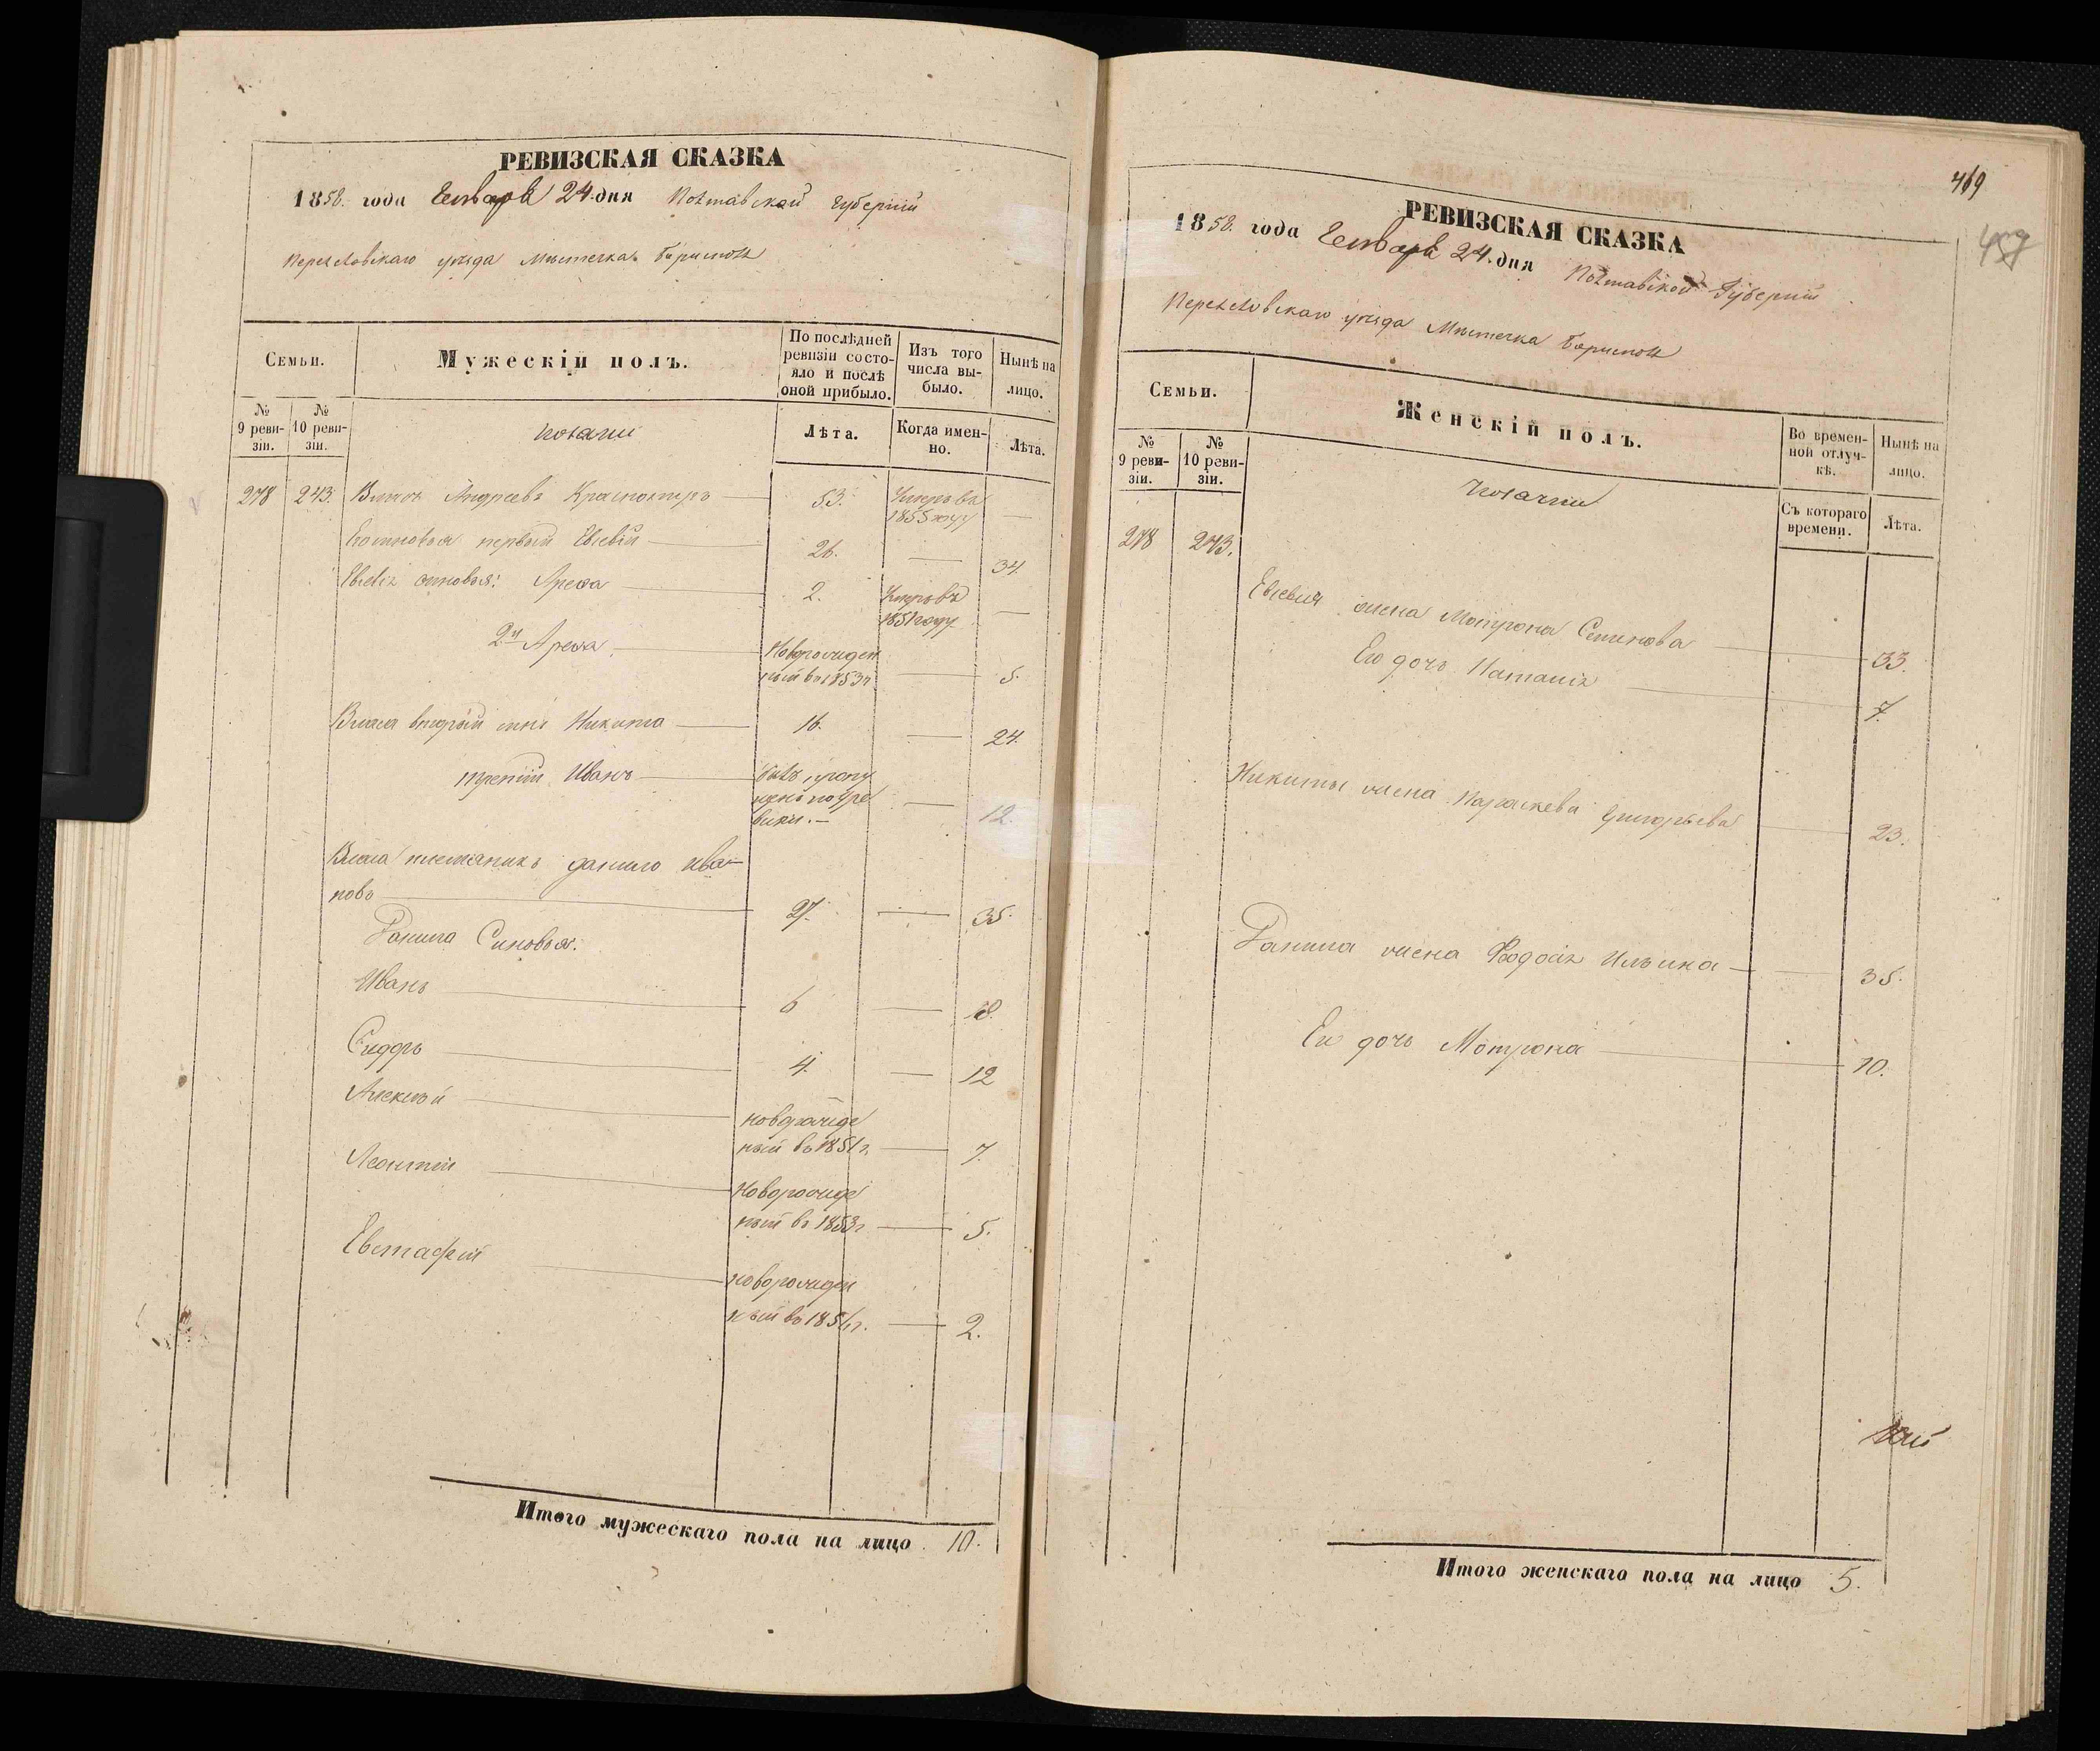 РЕВИЗСКАЯ СКАЗКА
1858. года Генваря 24. дня Полтавской Губерніи
Переяславскаго уѣзда Мѣстечка Борисполя
Семьи.
Мужескій полъ.
По послѣдней ревизіи состояло и послѣ оной прибыло.
Изъ того числа выбыло.
Нынѣ на лицо.
№ 9 ревизіи.
№ 10 ревизіи.
Козачій
Лѣта.
Когда именно.
Лѣта.
278 243. Андреевъ 53. Умеръ въ 1855 году —
первый Евсевій 26. — 34.
Евсевія сыновья: Арефа 2. Умеръ въ 1851 году —
2й Арефа Новорожденный въ 1853 г. — 5.
Власа вторый сынъ Никита 16. — 24.
третій Иванъ — 12.
Власа племяникъ Данило Ивановъ 27. — 35.
Данила Сыновья:
Иванъ 6 —
Сидоръ 4. — 12
Алексѣй новорожденый въ 1851 г. — 7.
Леонтій Новорожденый въ 1853 г. — 5.
Евстафій новорожденный въ 1856 г. — 2.
Итого мужескаго пола на лицо 10.
469
РЕВИЗСКАЯ СКАЗКА
1858. года Генваря 24. дня Полтавской Губерніи
Переяславскаго уѣзда Мѣстечка Борисполя
Семьи.
Женскій полъ.
Во временной отлучкѣ.
Нынѣ на лицо.
№ 9 ревизіи.
№ 10 ревизіи.
Козачій
Съ котораго времени.
Лѣта.
278 243.
Евсевія жена Мотрона Семенова — 33.
Его дочь Наталія — 7.
Никиты жена Параскева Григорьева — 23.
Данила жена Феодосія Ильина — 35.
Его дочь Мотрона — 10.
Итого женскаго пола на лицо 5.